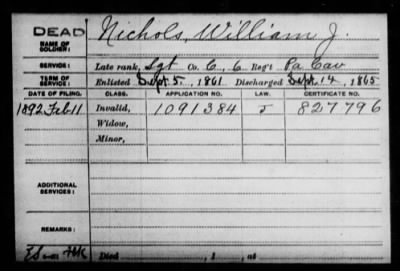 DEAD Nichols, William J.
NAME OF SOLDIER:
SERVICE: Late rank, Sgt Co. C, 6 Reg't Pa Cav
TERM OF SERVICE: Enlisted Sept. 5, 1861 Discharged Sept. 14, 1865
DATE OF FILING. CLASS. APPLICATION NO. LAW. CERTIFICATE NO.
1892 Feb 11 Invalid, 1091384 J 827796
Widow,
Minor,
ADDITIONAL SERVICES:
REMARKS:
Died , 1 , at